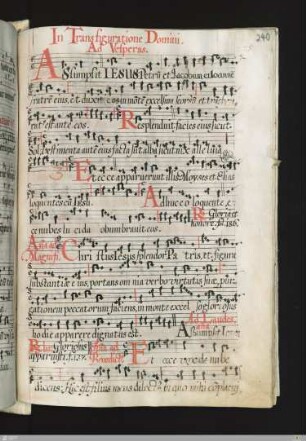 In Transfiguratione Domini.
Ad Vesperas.
240
Assumpsit IESUS Petrum et Jacobum et Joannem
fratrem eius, et duxit eos in montem excelsum seorsum et transfi
est ante eos. Resplenduit facies eius sicut
Sol, vestimenta autem eius facta sunt alba sicut nix alleluia
Et ecce apparuerunt illis Moyses et Elias
loquentes cum Iesu. Adhuc eo loquente e
cce nubes lucida obumbravit eos.
Rs Gloria et
honore. fol. 186
Ana ad
Magnif. Christus Iesus splendor Patris, et figura
substantiae eius portans omnia verbo virtutis suae, pur
gationem peccatorum faciens, in monte excelso gloriosus
hodie apparere dignatus est.
Ad Laudes
Assumpsit Iesus
Gloriosus
apparuisti
Benedict. Et ecce vox de nube
dicens: Hic est filius meus dilectus in quo mihi complacui